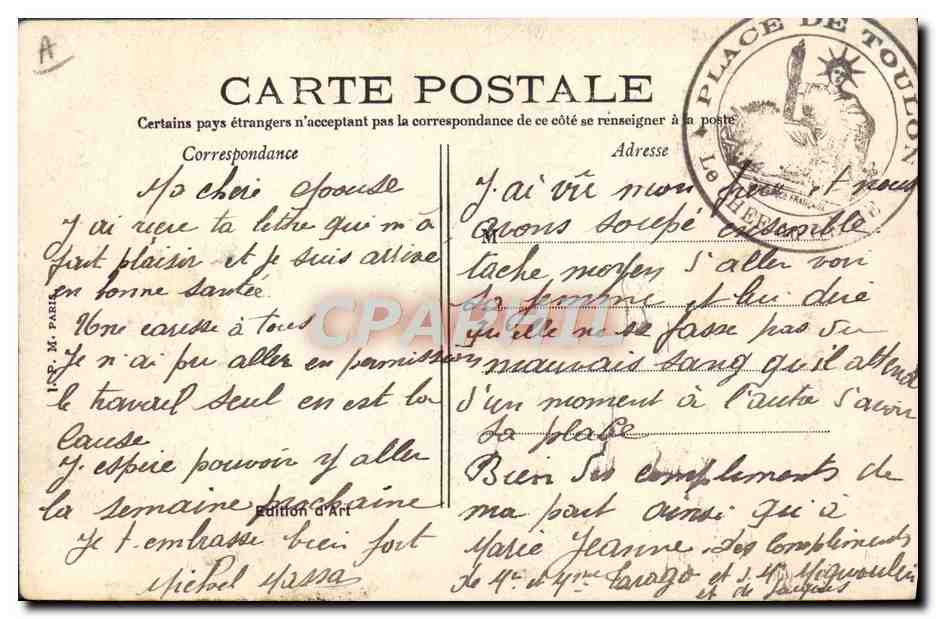 A
CARTE POSTALE
Certains pays étrangers n'acceptant pas la correspondance de ce côté se renseigner à la poste
Correspondance
Ma chère épouse
J'ai reçue ta lettre qui m'a
fait plaisir et je suis arrivé
en bonne santée
Une caresse à tous
Je n'ai pu aller en permission
le travail seul en est la
cause
J'espère pouvoir y aller
la semaine prochaine
Je t'embrasse bien fort
Michel Massa
Edition d'Art
I. P. M. PARIS
Adresse
M
J'ai vu mon frère et nous
avons soupé ensemble
tache moyen d'aller voir
sa femme et lui dire
qu'elle ne se fasse pas du
mauvais sang qu'il attend
d'un moment à l'autre d'avoir
sa place
Bien des compliments de
ma part ainsi qu'à
Marie Jeanne. Des compliments
de Mr et Mme et d
et de
PLACE DE TOULON
Le
FRANÇAISE
CPARAMA